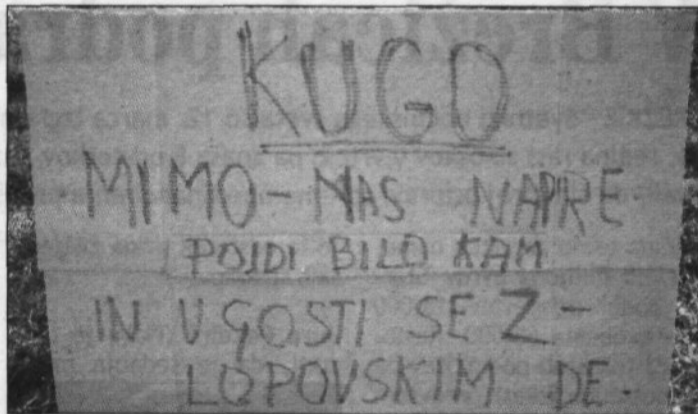 KUGO
MIMO-NAS NAPRE-
POJDI BILO KAM
IN UGOSTI SE Z-
LOPOVSKIM DE-